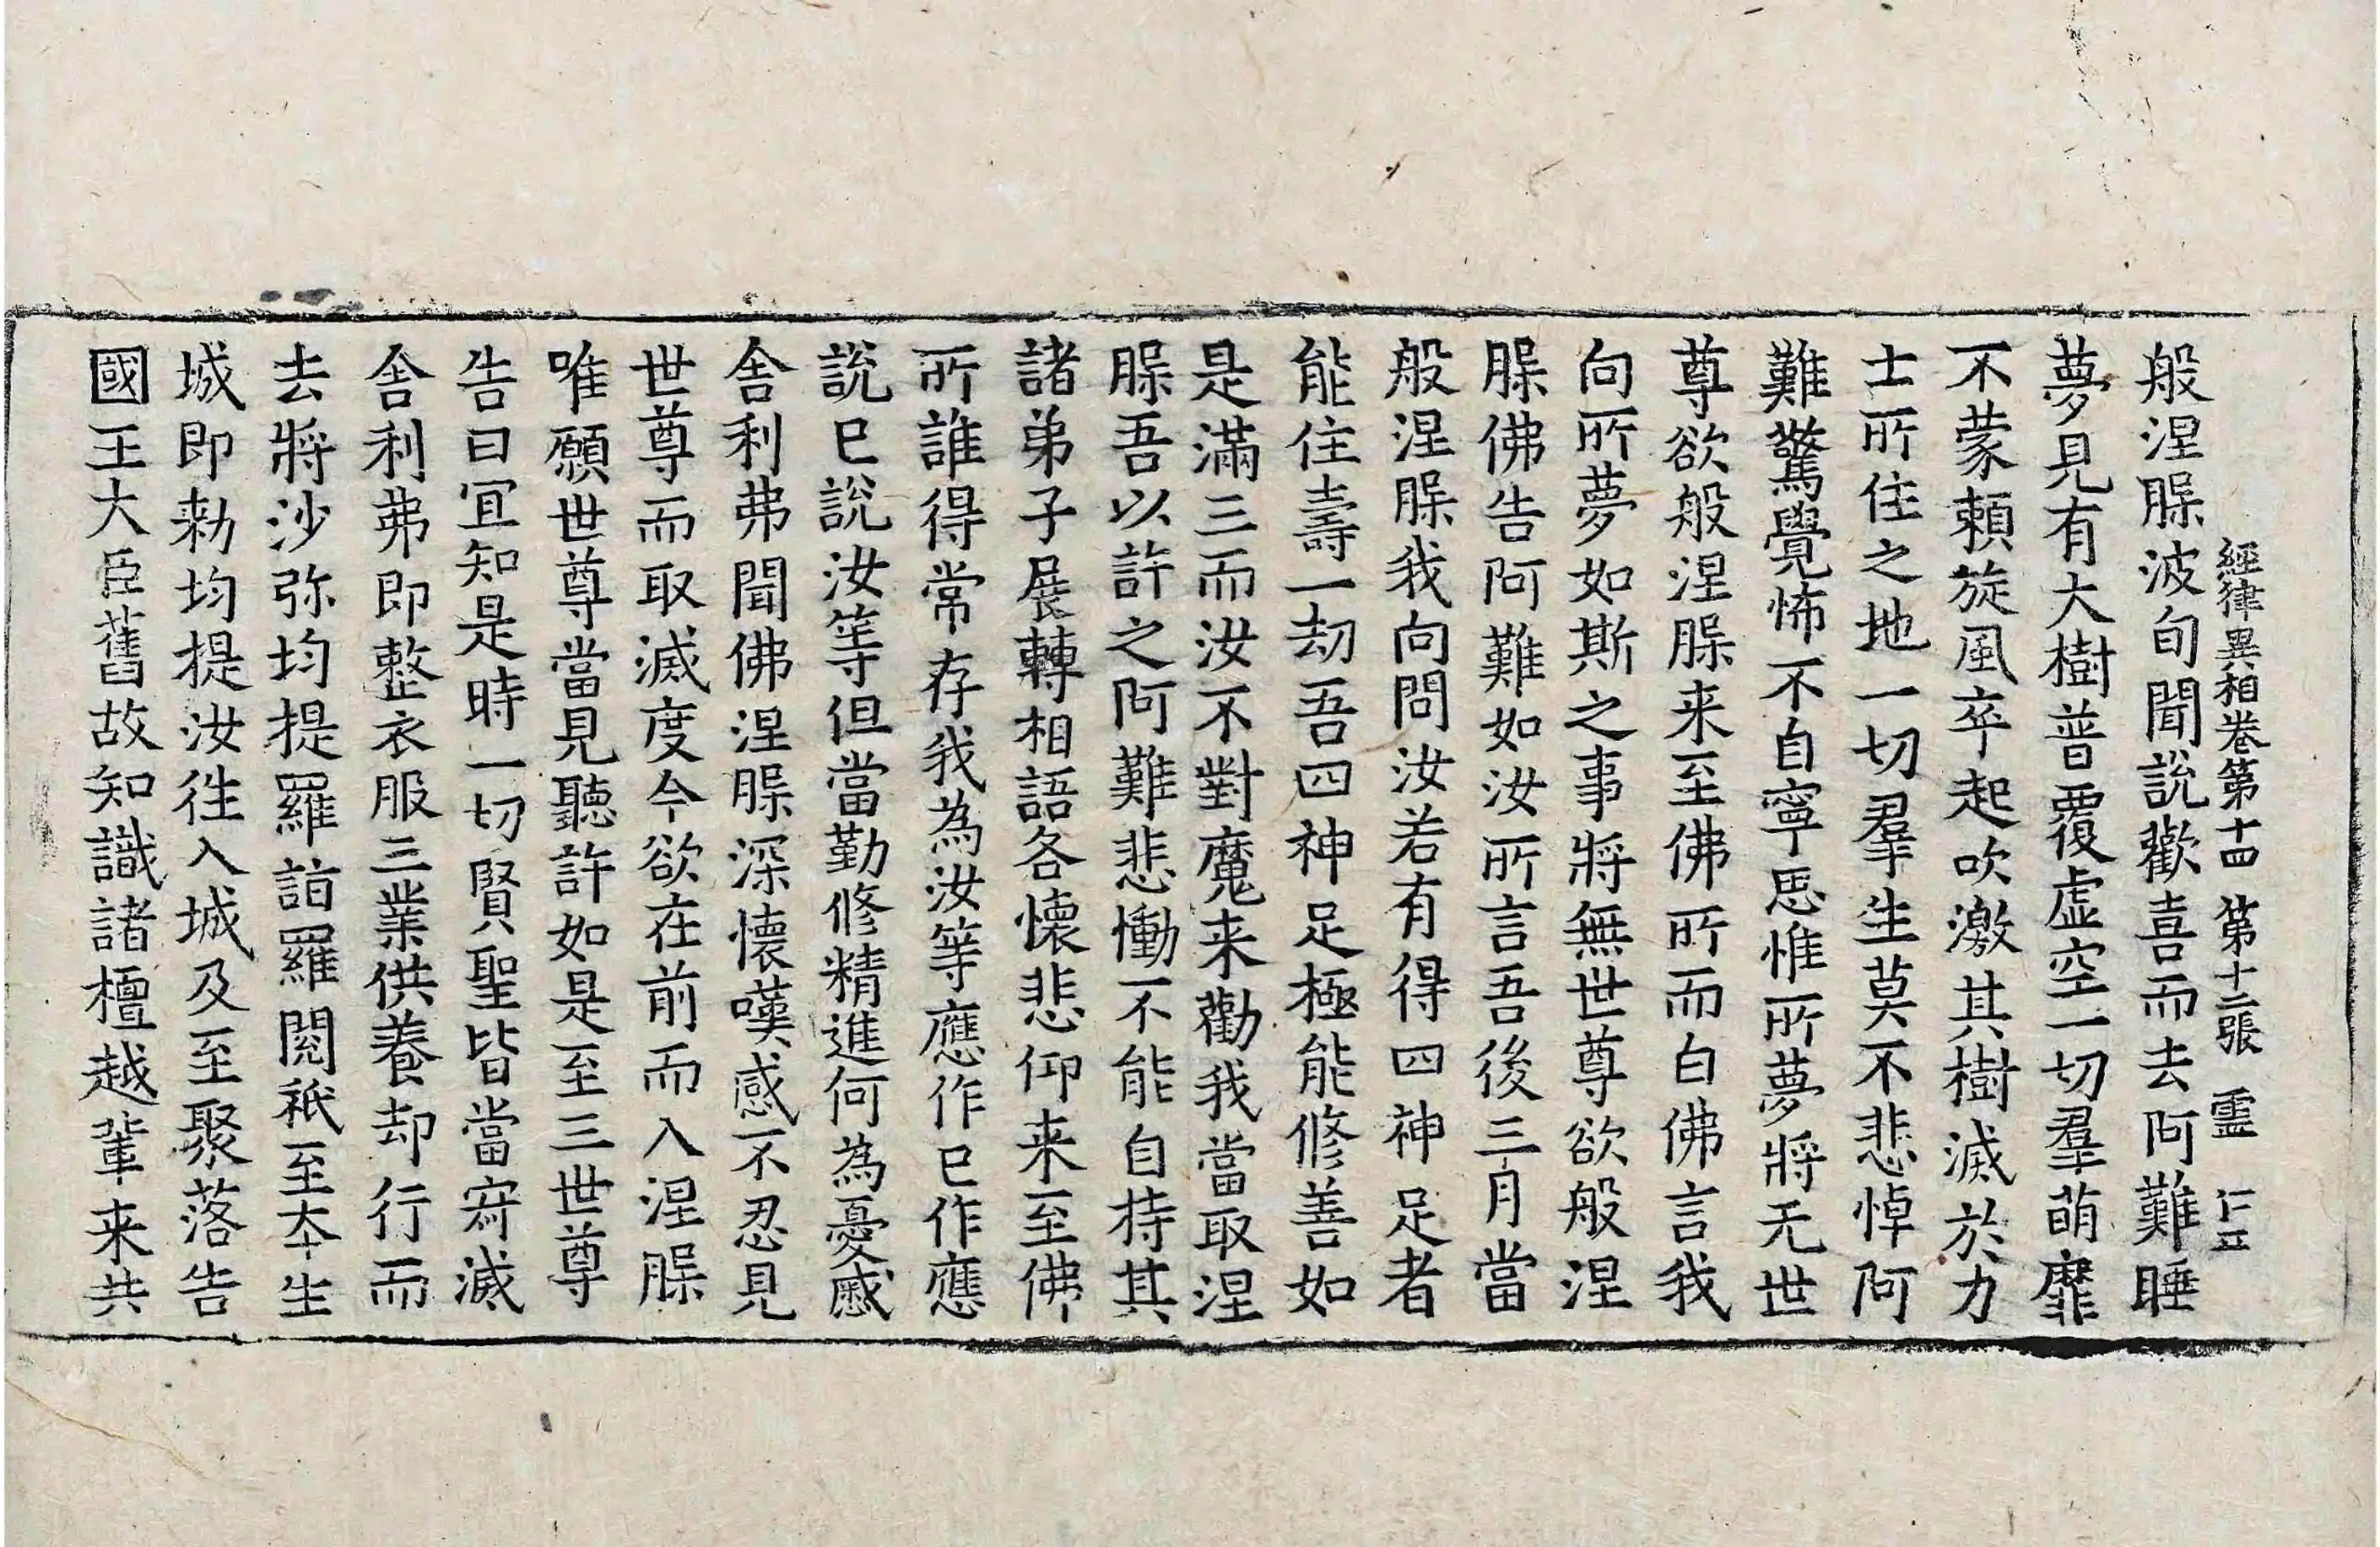 經律異相卷第十四 第十二張 霊 仁五
般涅脲波旬聞說歡喜而去阿難睡
夢見有大樹普覆虛空一切羣萌靡
不蒙賴旋風卒起吹激其樹滅於力
士所住之地一切羣生莫不悲悼阿
難驚覺怖不自寧思惟所夢將无世
尊欲般涅脲来至佛所而白佛言我
向所夢如斯之事將無世尊欲般涅
脲佛告阿難如汝所言吾後三月當
般涅脲我向問汝若有得四神足者
能住壽一劫吾四神足極能修善如
是滿三而汝不對魔来勸我當取涅
脲吾以許之阿難悲慟不能自持其
諸弟子展轉相語各懷悲仰来至佛
所誰得常存我為汝等應作已作應
說已說汝等但當勤修精進何為憂慼
舍利弗聞佛涅脲深懷嘆感不忍見
世尊而取滅度今欲在前而入涅脲
唯願世尊當見聽許如是至三世尊
告曰宜知是時一切賢聖皆當寂滅
舍利弗即整衣服三業供養却行而
去將沙弥均提羅詣羅閱祇至夲生
城即勑均提汝徃入城及至聚落告
國王大臣舊故知識諸檀越輩来共